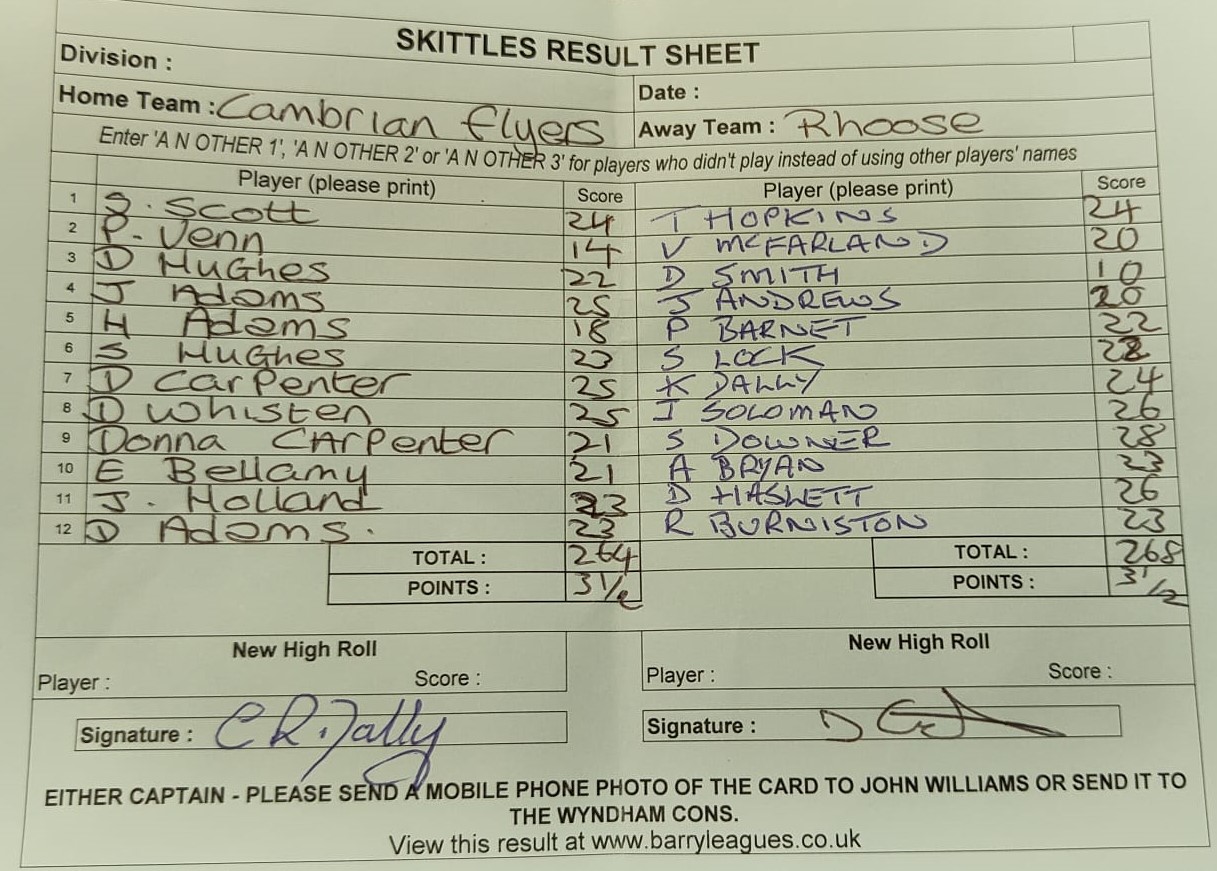 SKITTLES RESULT SHEET
Division :
Date :
Home Team : Cambrian Flyers Away Team : Rhoose
Enter 'A N OTHER 1', 'A N OTHER 2' or 'A N OTHER 3' for players who didn't play instead of using other players' names
Player (please print) Score Player (please print) Score
1 Scott 24 T HOPKINS 24
2 P. Venn 14 V McFARLAND 20
3 D HuGhes 22 D SMITH 10
4 J Adams 25 J ANDREWS 20
5 H Adams 18 P BARNET 22
6 S HuGhes 23 S LOCK 22
7 D CarPenter 25 K DALLY 24
8 D Whisten 25 I SOLOMAN 26
9 Donna CHArPenter 21 S DOWNER 28
10 E Bellamy 21 A BRYAN 23
11 J. Holland 23 D HASLETT 26
12 D Adams. 23 R BURNISTON 23
TOTAL : 264 TOTAL : 268
POINTS : 3 1/2 POINTS : 3 1/2
New High Roll New High Roll
Player : Score : Player : Score :
Signature : C R. Dally Signature : D
EITHER CAPTAIN - PLEASE SEND A MOBILE PHONE PHOTO OF THE CARD TO JOHN WILLIAMS OR SEND IT TO
THE WYNDHAM CONS.
View this result at www.barryleagues.co.uk